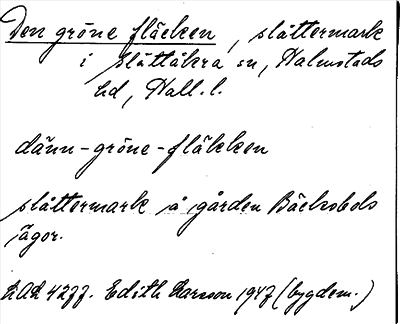 Den gröne fläcken, slåttermark
i Slättåkra sn, Halmstads
hd, Hall. l.
dänn-gröne-fläkken
slåttermark å gården Bäckabols
ägor.
LAL 4277. Edith Larsson 1947 (bygdem.)